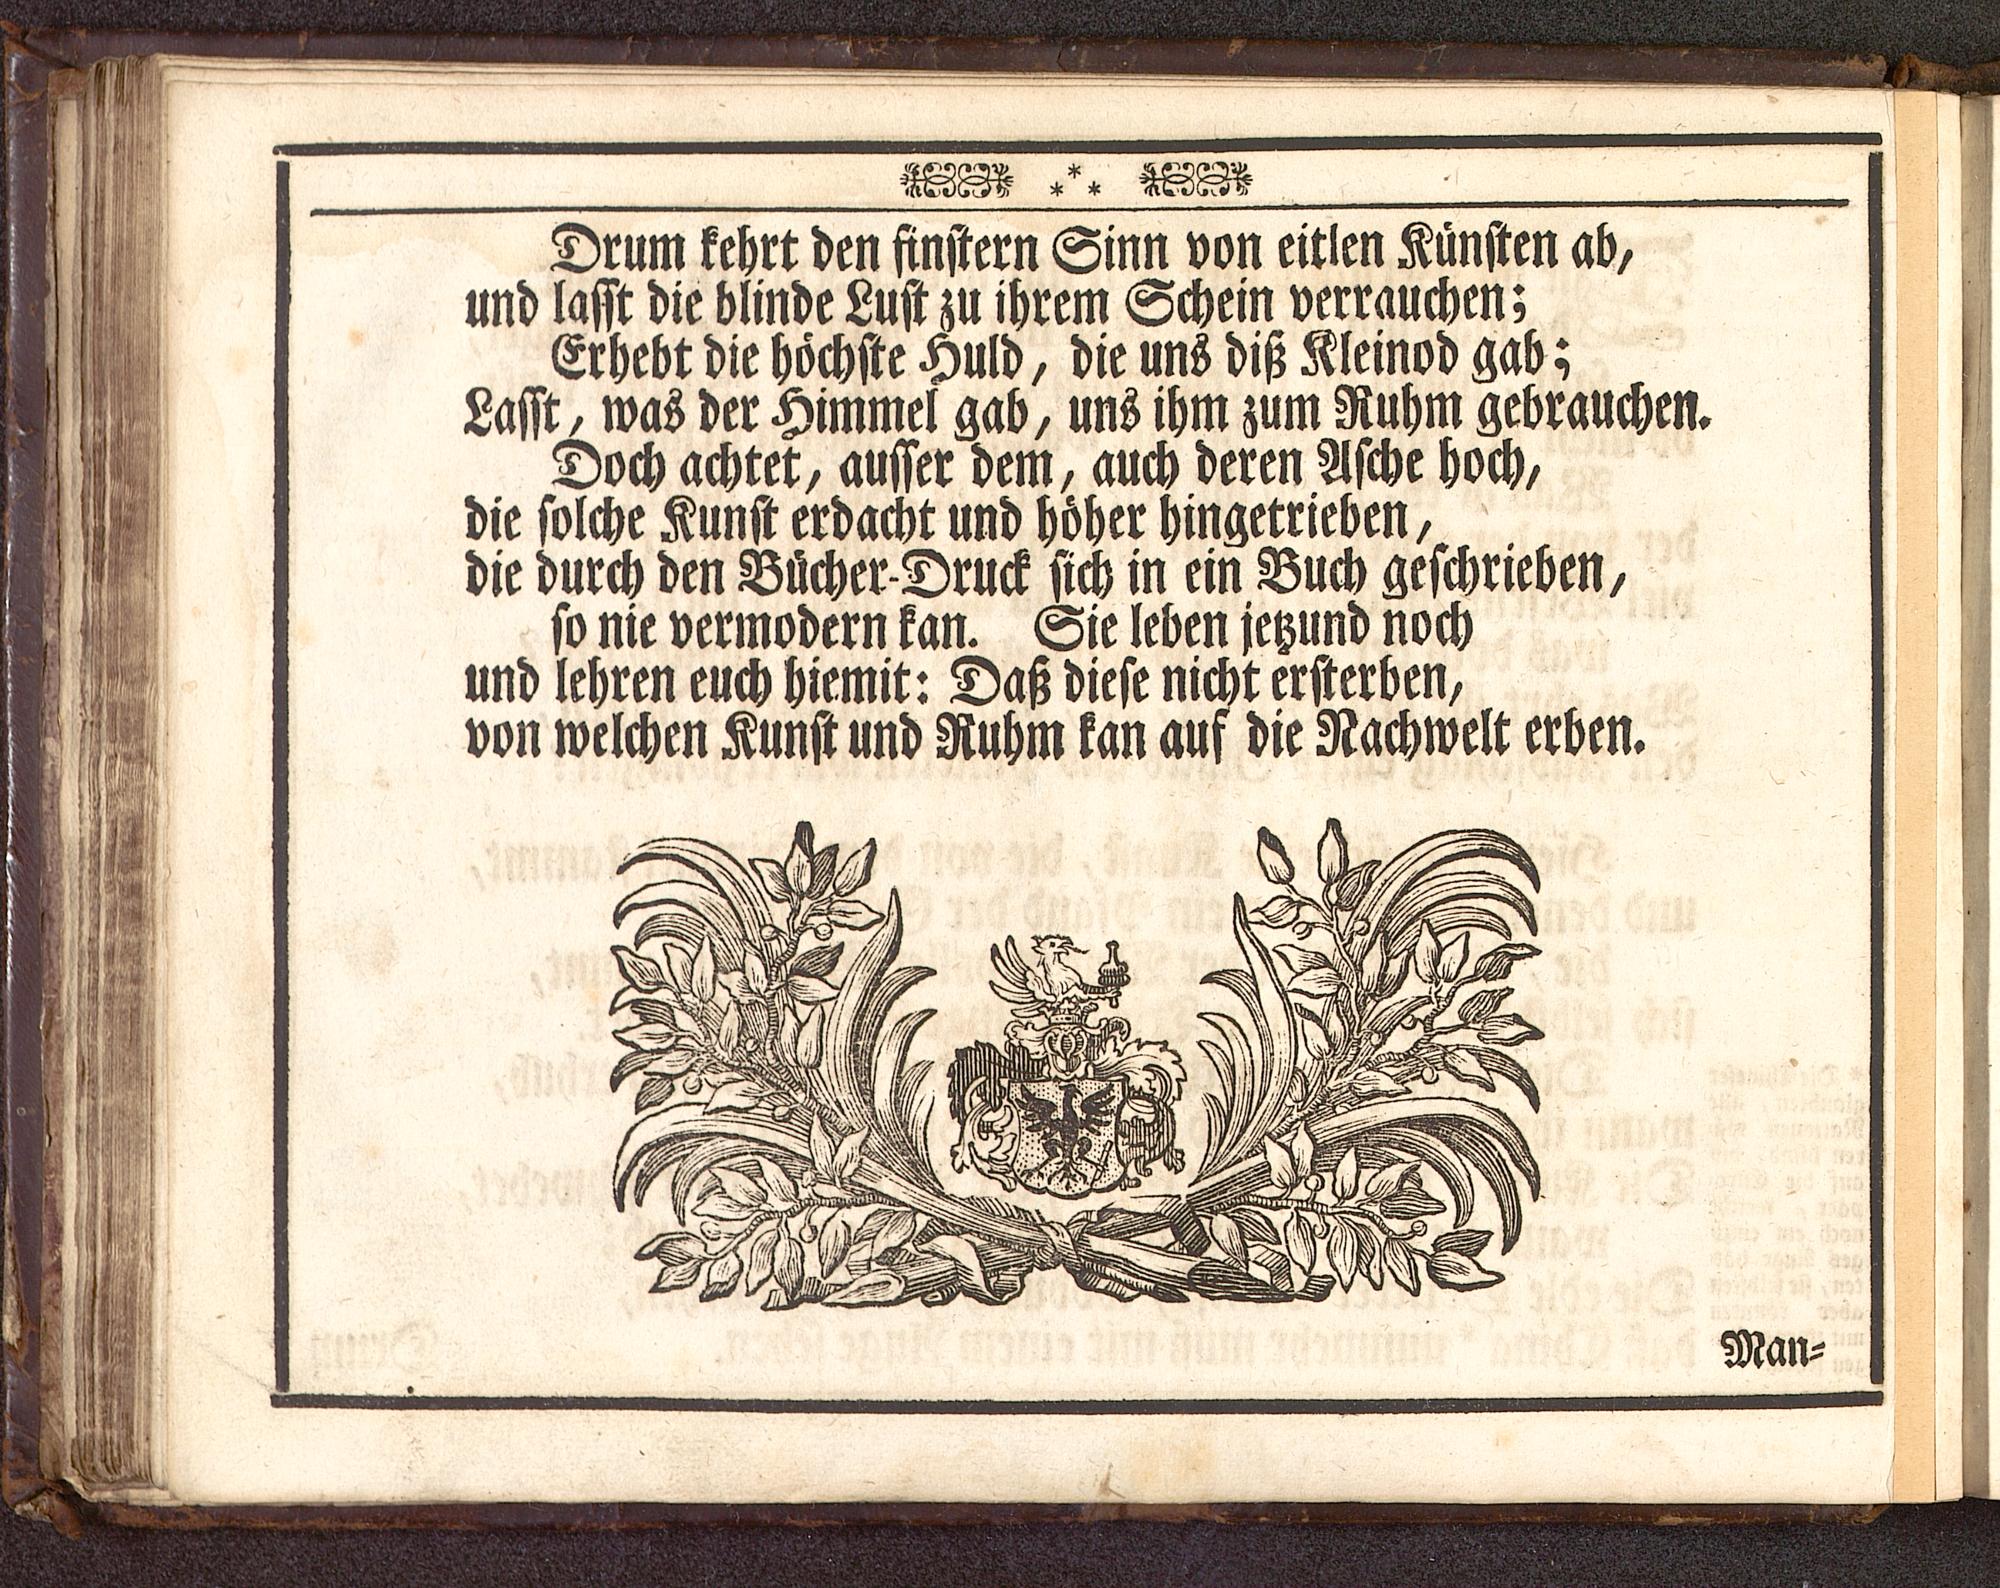 Drum kehrt den finstern Sinn von eitlen Künsten ab,
und lasst die blinde Lust zu ihrem Schein verrauchen;
Erhebt die höchste Huld, die uns diß Kleinod gab;
Lasst, was der Himmel gab, uns ihm zum Ruhm gebrauchen.
Doch achtet, ausser dem, auch deren Asche hoch,
die solche Kunst erdacht und höher hingetrieben,
die durch den Bücher-Druck sich in ein Buch geschrieben,
so nie vermodern kan. Sie leben jetzund noch
und lehren euch hiemit: Daß diese nicht ersterben,
von welchen Kunst und Ruhm kan auf die Nachwelt erben.
Man-